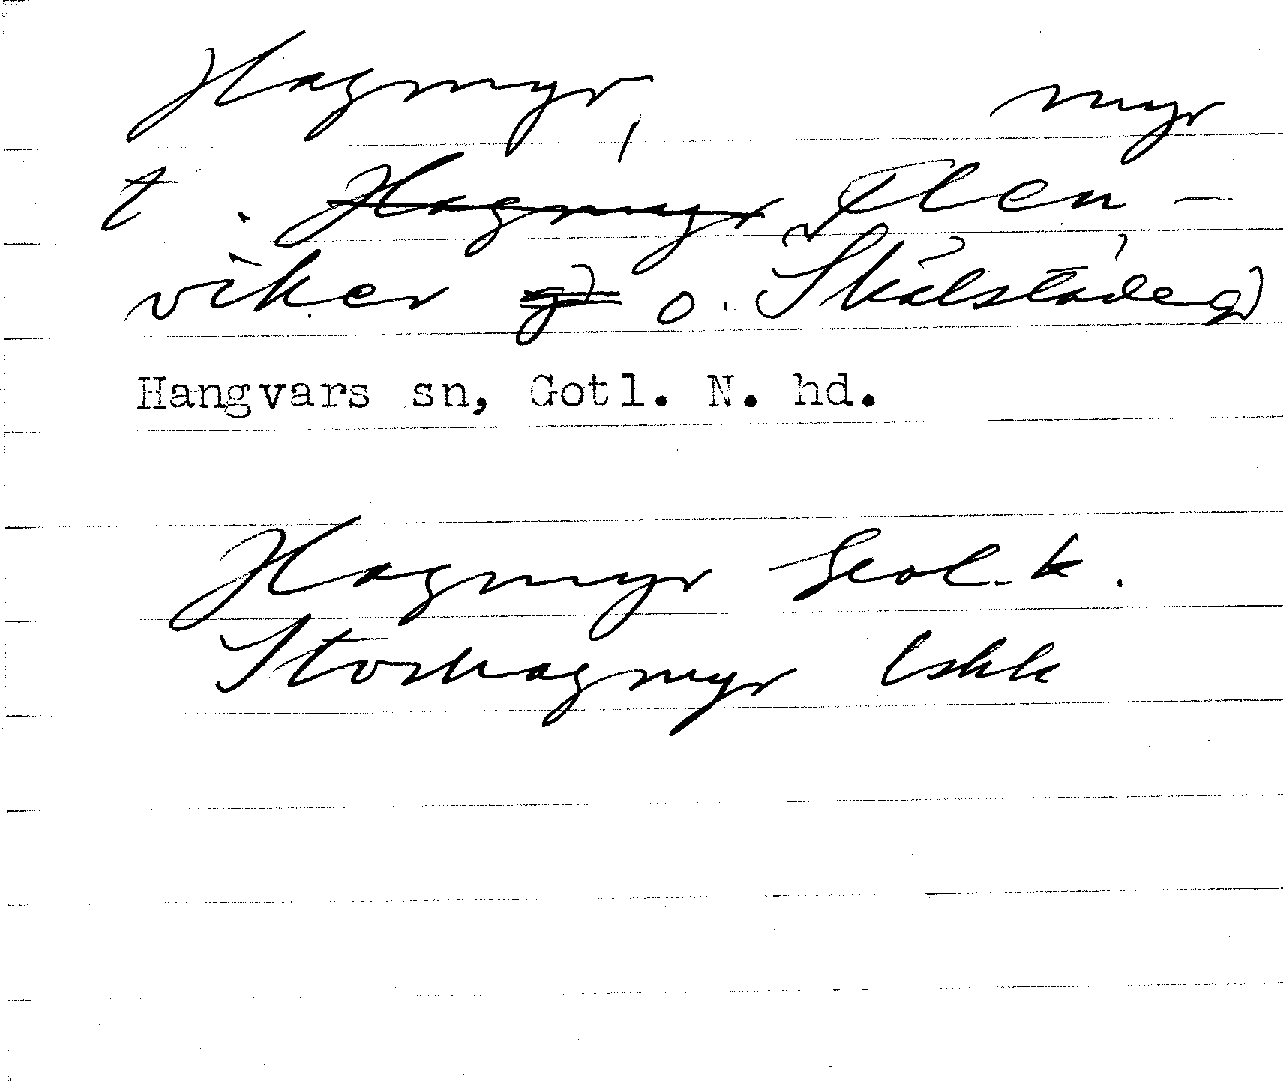 Hagmyr, myr
t. Hagmyr Flen-
viker g) o. Skälstäde g)
Hangvars sn, Gotl. N. hd.
Hagmyr Geol. k.
Storhagmyr Lskk